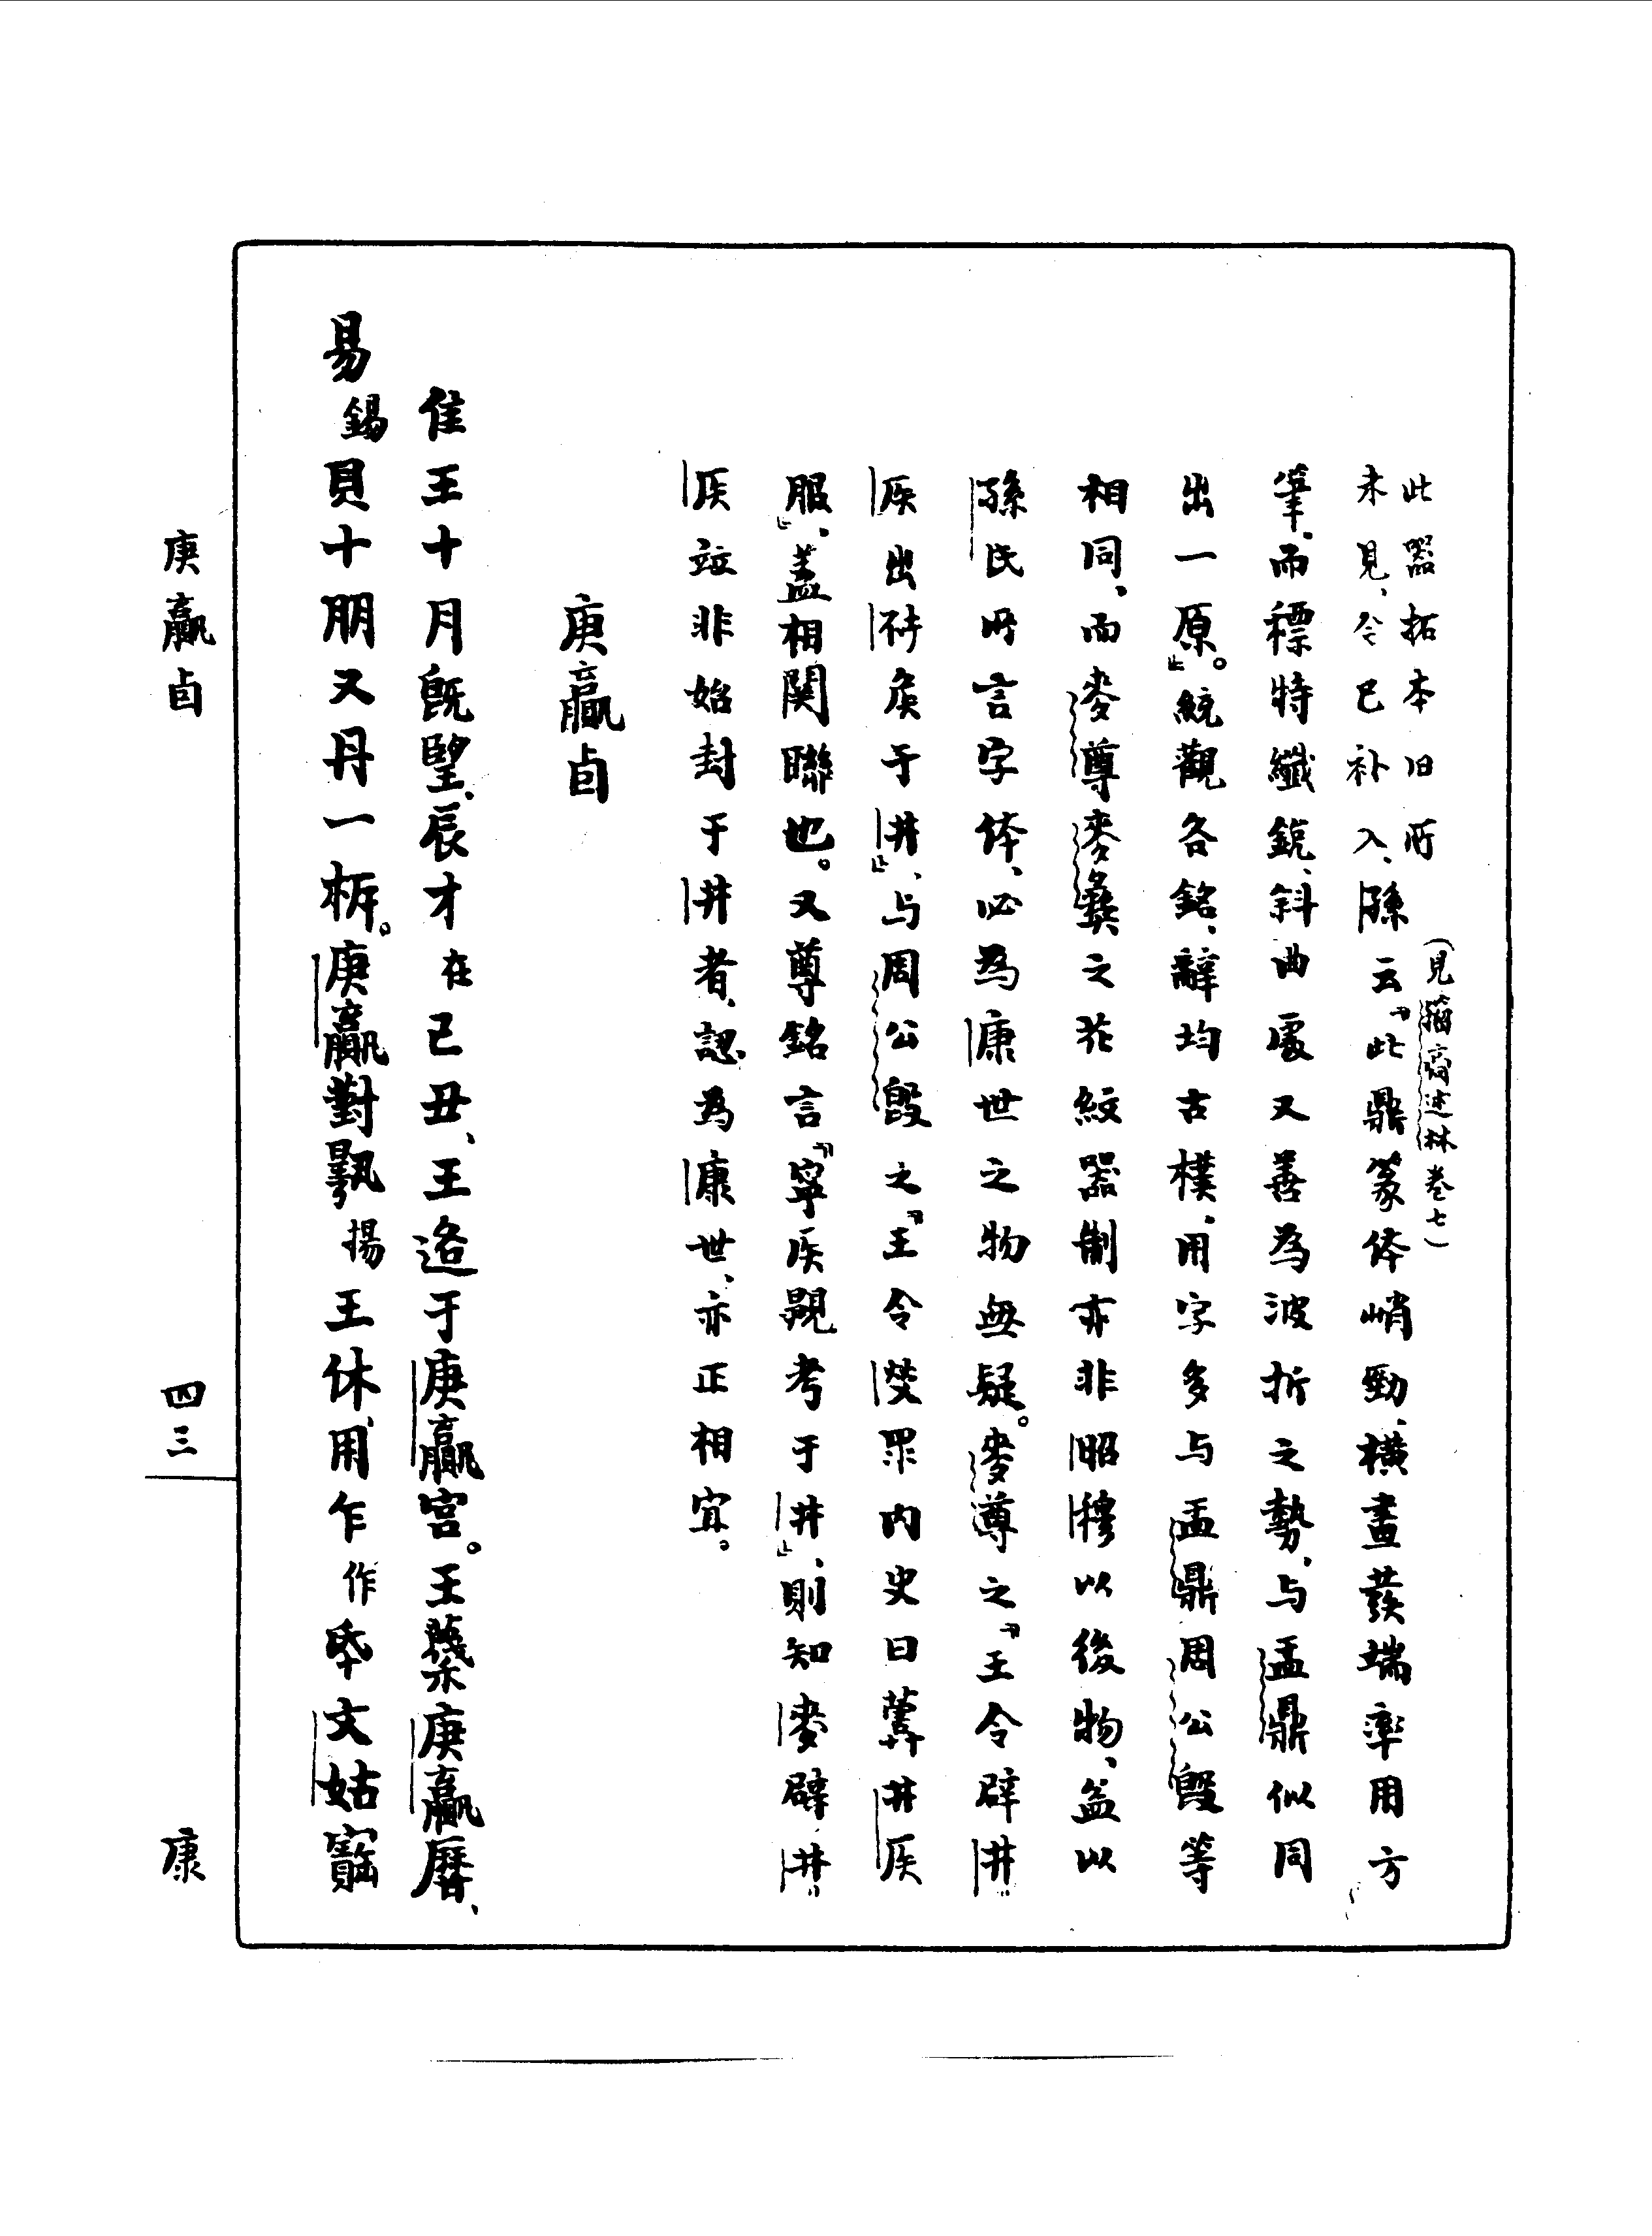 此器拓本旧所
未見、今已补入、孫云「此鼎篆体峭勁、橫畫發端率用方
(見籀膏述林卷七)
筆、而標特纖銳、斜曲處又善為波折之勢、与盂鼎似同
出一原」。統觀各銘、辭均古樸、用字多与盂鼎周公𣪘等
相同、而麥尊麥彝之花紋器制亦非昭穆以後物、益以
孫氏所言字体、必為康世之物無疑。麥尊之「王令辟井
侯出矺侯于井」、与周公𣪘之「王令𤇾眔内史曰𦱤井侯
服」、蓋相関聯也。又尊銘言「寧侯覭考于井」、則知麥辟井
侯竝非始封于井者、認為康世、亦正相宜。
庚嬴卣
隹王十月既朢、辰才在己丑、王𢓜于庚嬴宮。王蔑庚嬴曆、
易錫貝十朋又丹一𣐈。庚嬴對𩰫揚王休、用乍作氒文姑寶
庚嬴卣
四三
康